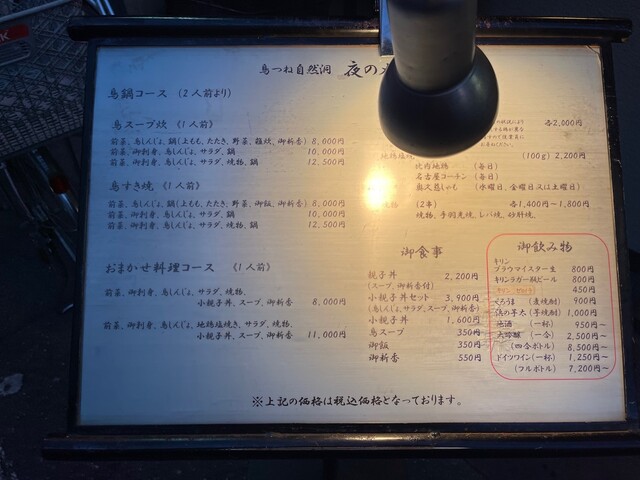 鳥つね自然洞 夜の
鳥鍋コース (2人前より)
鳥スープ炊 《1人前》
前菜、鳥しんじょ、鍋(上もも、たたき、野菜、雑炊、御新香) 8,000円
前菜、御刺身、鳥しんじょ、サラダ、鍋 10,000円
前菜、御刺身、鳥しんじょ、サラダ、焼物、鍋 12,500円
鳥すき焼 《1人前》
前菜、鳥しんじょ、鍋(上もも、たたき、野菜、御飯、御新香) 8,000円
前菜、御刺身、鳥しんじょ、サラダ、鍋 10,000円
前菜、御刺身、鳥しんじょ、サラダ、焼物、鍋 12,500円
おまかせ料理コース 《1人前》
前菜、御刺身、鳥しんじょ、サラダ、焼物、
小親子丼、スープ、御新香 8,000円
前菜、御刺身、鳥しんじょ、地鶏塩焼き、サラダ、焼物、
小親子丼、スープ、御新香 11,000円
各2,000円
地鶏塩焼 (100g) 2,200円
比内地鶏 (毎日)
名古屋コーチン (毎日)
奥久慈しゃも (水曜日、金曜日又は土曜日)
焼物 (2串) 各1,400円~1,800円
焼物、手羽先焼、レバ焼、砂肝焼。
御食事
親子丼 2,200円
(スープ、御新香付)
小親子丼セット 3,900円
(鳥しんじょ、サラダ、スープ、御新香付)
小親子丼 1,600円
鳥スープ 350円
御飯 350円
御新香 550円
御飲み物
キリン
ブラウマイスター生 800円
キリンラガー瓶ビール 800円
450円
くろうま (麦焼酎) 900円
浜の芋太(芋焼酎) 1,000円
地酒 (一杯) 950円~
大吟醸 (一合) 2,500円~
(四合ボトル) 8,500円~
ドイツワイン(一杯) 1,250円~
(フルボトル) 7,200円~
※上記の価格は税込価格となっております。